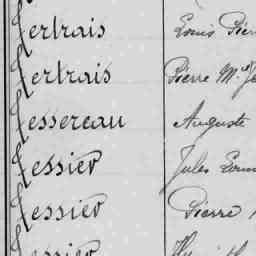 Tertrais Louis Pier
Tertrais Pierre M.
Tessereau Auguste
Tessier Jules
Tessier Pierre
Tessier